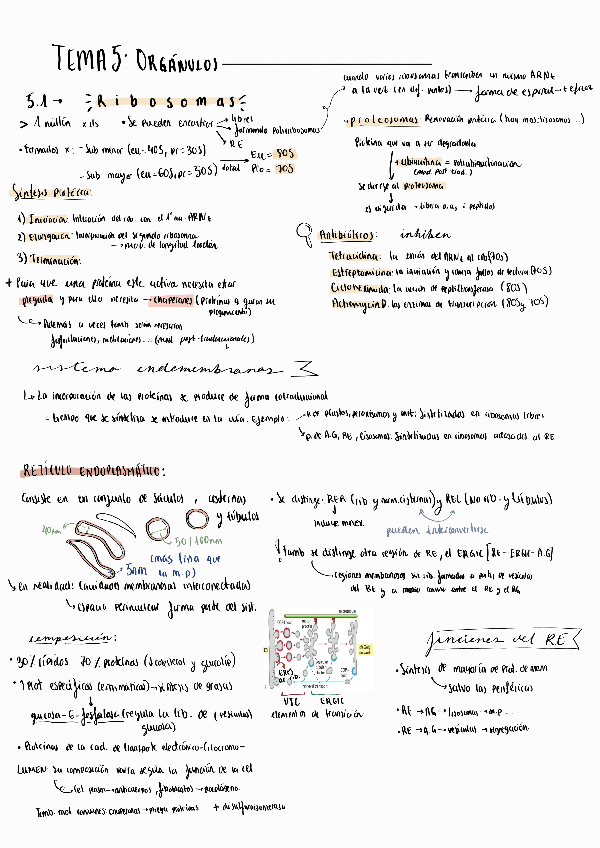 TEMA 5: ORGÁNULOS
5.1 → Ribosomas
> 1 millón x
• Se pueden encontrar
libres
formando polirribosomas
RE
cuando varios ribosomas transcriben un mismo ARNm
a la vez (en dif. puntos) → forma de espiral → + eficaz
• Formados x: - Sub menor (eu-40S, pr=30S)
- Sub mayor (eu-60S, pr=50S)
total
Eu = 80S
Pro = 70S
• proteosomas: Renovación proteica (hay más: lisosomas...)
Proteína que va a ser degradada
+ ubiquitina = poliubiquitinación
se dirige al proteosoma
es digerida → libera a.a. i péptidos
Síntesis Proteica:
1) Iniciación: Interacción del rib. con el 1er ARNt
2) Elongación: Incorporación del segundo
3) Terminación:
+ Para que una proteína este activa necesita estar
plegada y para ello necesita → chaperones (Proteínas q guían su
plegamiento)
Además a veces tamb son necesarias
Antibióticos: inhiben
Tetraciclina: la unión del ARNt al rib (70S)
Estreptomicina: la iniciación y causa fallos de lectura (70S)
Cicloheximida: la acción de peptidiltransferasa (80S)
Actinomycin D: las enzimas de transcripción (80S y 70S)
sistema endomembranas
↳ La incorporación de las proteínas se produce de forma cotraduccional
- tiempo que se sintetiza se introduce en la vía. Ejemplo:
p. de plastos, peroxisomas y mit: Sintetizadas en ribosomas libres
p. de A.G, RE, lisosomas: Sintetizadas en ribosomas adosados al RE
RETÍCULO ENDOPLASMÁTICO:
Consiste en un conjunto de sáculos, cisternas
y túbulos
40nm
50/100nm
5nm
(más fina que
la m.p)
↳ en realidad: cavidades membranosas interconectadas
↳ espacio perinuclear forma parte del sist.
• Se distinge: RER (rib y num. cisternas) y REL (NO rib. y túbulos)
incluye m.nex.
pueden interconvertirse
Tamb se distinge otra región de RE, el ERGIC [RE - ERGIC - A.G]
regiones membranosas sin rib. formadas a partir de vesículas
del RE y a medio camino entre el RE y el AG
composición:
• 30% lípidos 70% proteínas (
• Prot específicas (enzimáticas) → síntesis de grasas
glucosa-6-fosfatasa (regula la lib. de (vesículas)
glucosa)
• Proteínas de la cad. de transporte electrónico-citocromo-
LUMEN: su composición varía según la función de la cel
cel plasm → anticuerpos, fibroblastos → procolágeno
Tamb. mol comunes: chaperonas → pliega proteínas + disulfuroisomerasa
VTC
ERGIC
elementos de transición
funciones del RE
• Síntesis de mayoría de Prot. de mem
salvo las periféricas
• RE → AG • lisosomas → m.p...
• RE → A.G → vesículas → segregación